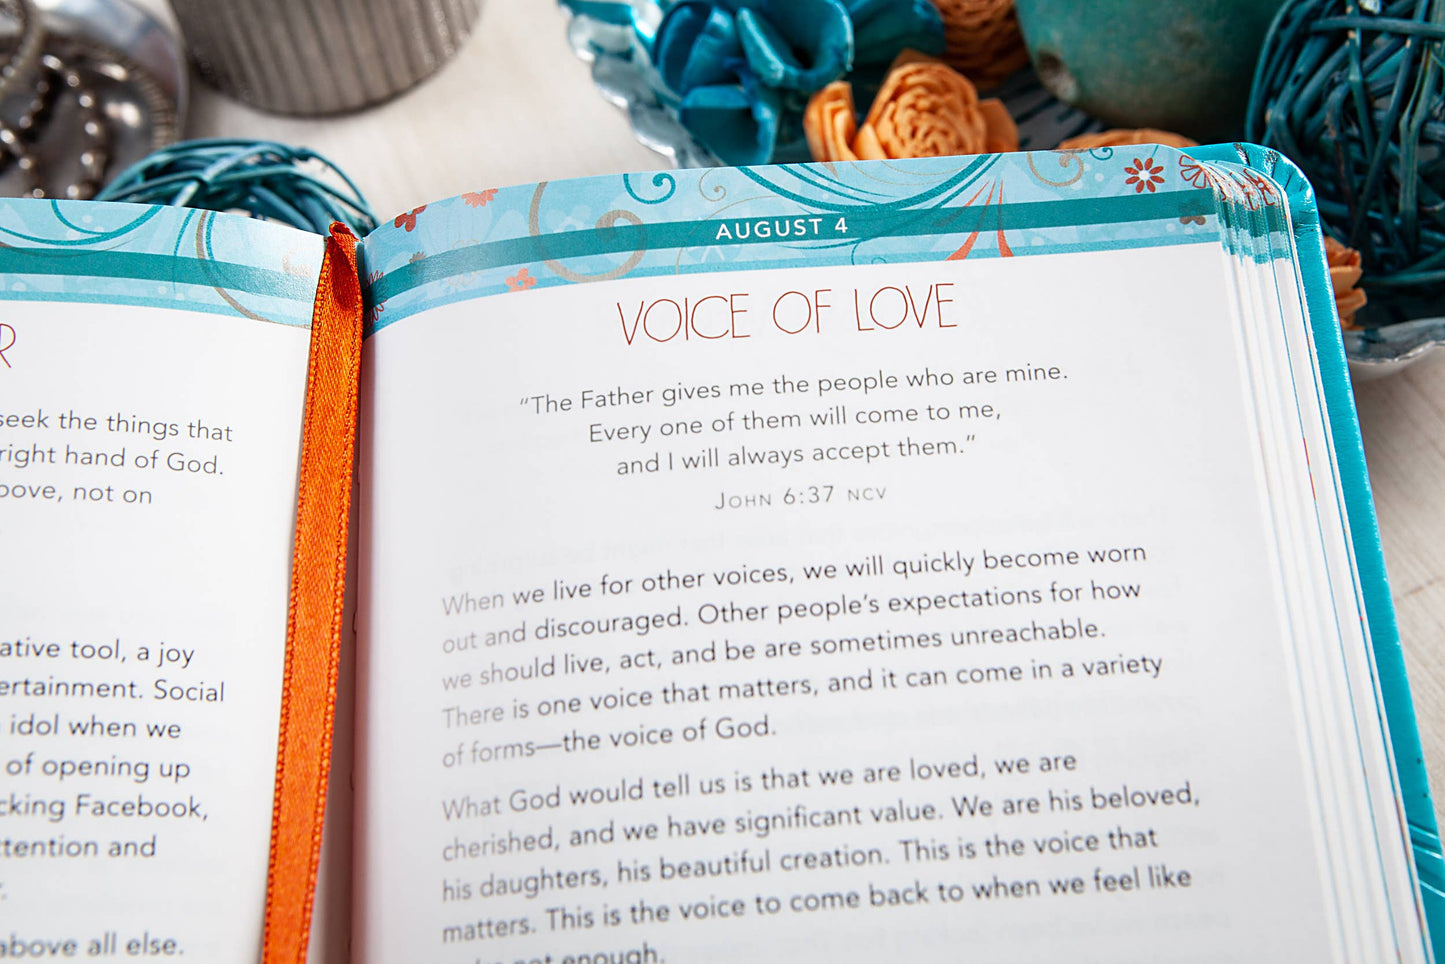 R
seek the things that
right hand of God.
not on
tool, a joy
Social
idol when we
of opening up
Facebook,
and
above all else.
AUGUST 4
VOICE OF LOVE
“The Father gives me the people who are mine.
Every one of them will come to me,
and I will always accept them.”
JOHN 6:37 NCV
When we live for other voices, we will quickly become worn
out and discouraged. Other people’s expectations for how
we should live, act, and be are sometimes unreachable.
There is one voice that matters, and it can come in a variety
of forms—the voice of God.
What God would tell us is that we are loved, we are
cherished, and we have significant value. We are his beloved,
his daughters, his beautiful creation. This is the voice that
matters. This is the voice to come back to when we feel like
not enough.